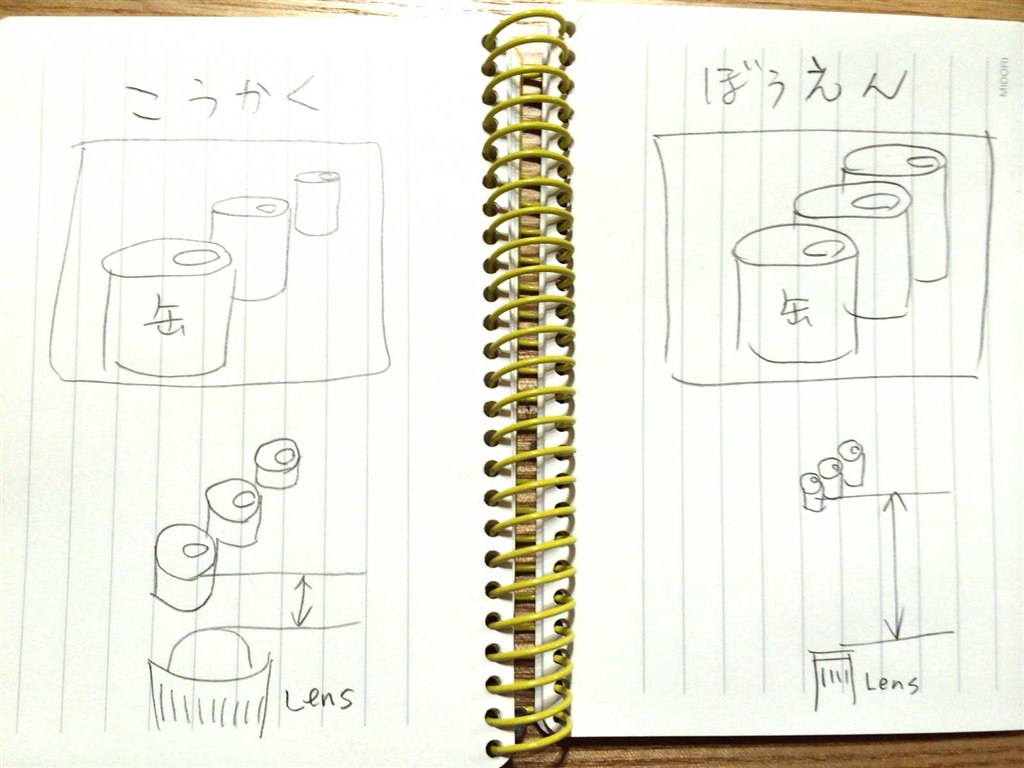 こうかく
缶
Lens
ぼうえん
MIDORI
缶
Lens